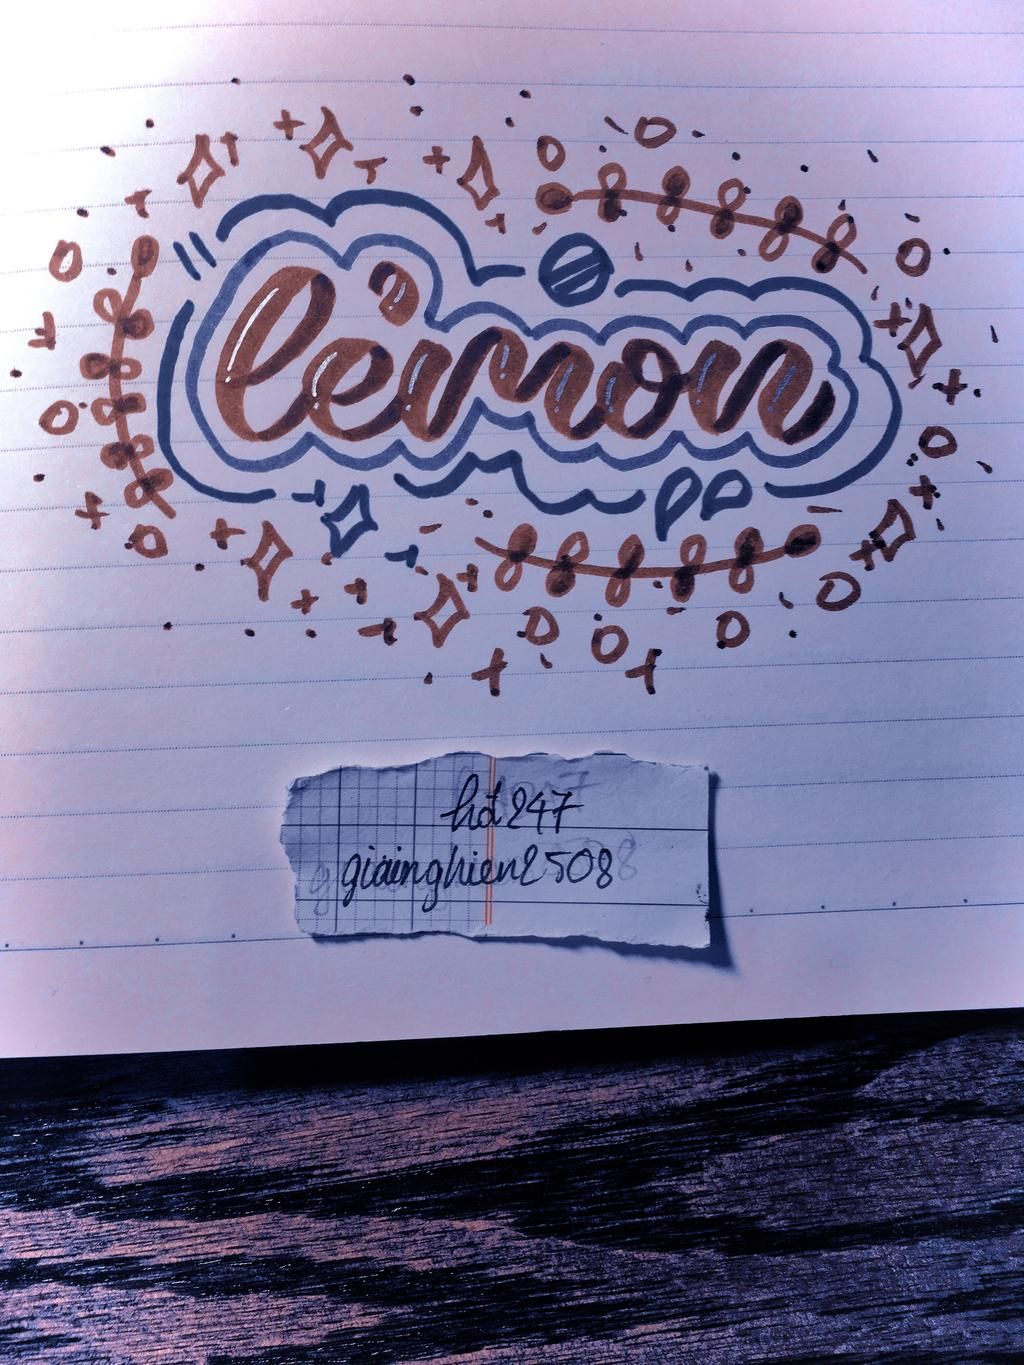 lemon
hd247
giainghien2508